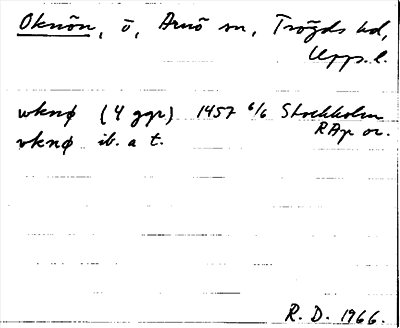 Oknön, ö, Arnö sn, Trögds hd,
Upps. l.
wknø (4 ggr) 1457 6/6 Stockholm
RAp or.
vknø ib. a t.
R. D. 1966.